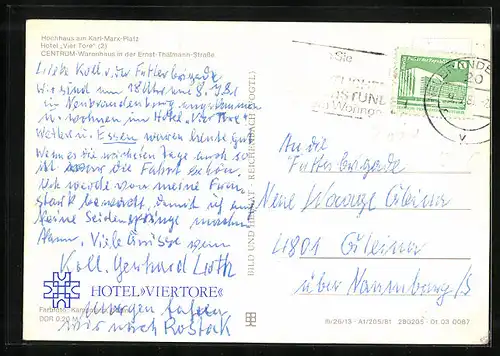 Hochhaus am Karl-Marx-Platz
Hotel „Vier Tore" (2)
CENTRUM-Warenhaus in der Ernst-Thälmann-Straße
Liebe Koll. v. der Futterbrigade
Wir sind um 18 Uhr am 8.
in Neubrandenburg angekommen
u. wohnen im Hotel „Vier Tore"
Wetter u. Essen waren heute gut
Wenn die nächsten Tage auch so
ist war die Fahrt schön.
Ich werde von meine Frau
stark bewacht, damit ich auch
keine Seitensprünge machen
kann. Viele Grüsse vom
Koll. Gerhard
HOTEL»VIERTORE«
Morgen fahren
wir nach Rostock
DDR 0,20 M
BILD UND HEIMAT REICHENBACH (VOGTL)
Sie
STUND
20
An die
Futterbrigade
Neue Gleina
4801 Gleina
über Naumburg/S
III/26/13 A1/205/81 280205 01 03 0067